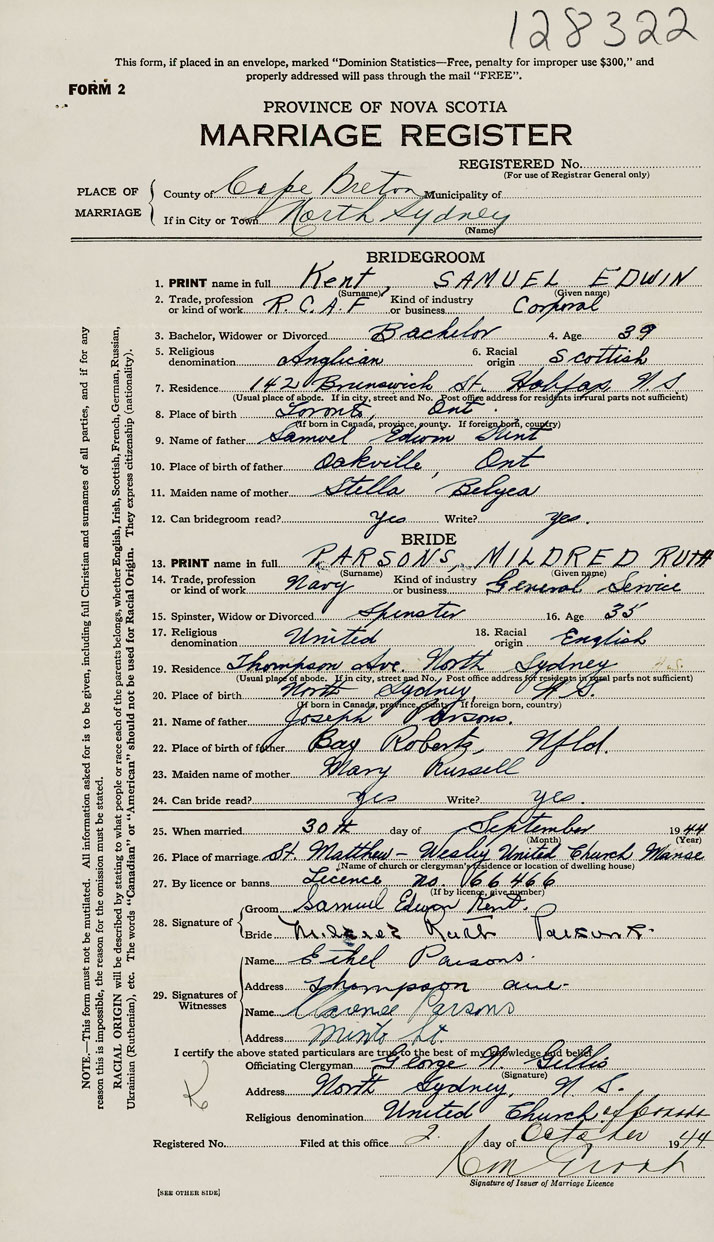 128322
This form, if placed in an envelope, marked "Dominion Statistics—Free, penalty for improper use $300," and
properly addressed will pass through the mail "FREE".
FORM 2
PROVINCE OF NOVA SCOTIA
MARRIAGE REGISTER
REGISTERED No.
(For use of Registrar General only)
PLACE OF MARRIAGE
County of Cape Breton Municipality of
If in City or Town North Sydney
(Name)
BRIDEGROOM
1. PRINT name in full Kent, SAMUEL EDWIN
(Surname) (Given name)
2. Trade, profession or kind of work R.C.A.F Kind of industry or business Corporal
3. Bachelor, Widower or Divorced Bachelor 4. Age 39
5. Religious denomination Anglican 6. Racial origin Scottish
7. Residence 142 Brunswick St. Halifax N.S
(Usual place of abode. If in city, street and No. Post office address for residents in rural parts not sufficient)
8. Place of birth Toronto, Ont.
(If born in Canada, province, county. If foreign born, country)
9. Name of father Samuel Edwin Kent
10. Place of birth of father Oakville, Ont
11. Maiden name of mother Stella Belyea
12. Can bridegroom read? Yes Write? yes.
BRIDE
13. PRINT name in full PARSONS, MILDRED RUTH
(Surname) (Given name)
14. Trade, profession or kind of work Navy Kind of industry or business General Service
15. Spinster, Widow or Divorced Spinster 16. Age 35
17. Religious denomination United 18. Racial origin English
19. Residence Thompson Ave. North Sydney N.S.
(Usual place of abode. If in city, street and No. Post office address for residents in rural parts not sufficient)
20. Place of birth North Sydney, N.S.
(If born in Canada, province, county. If foreign born, country)
21. Name of father Joseph Parsons.
22. Place of birth of father Bay Roberts, Nfld.
23. Maiden name of mother Mary Russell
24. Can bride read? yes Write? yes.
25. When married 30th day of September 1944
(Month) (Year)
26. Place of marriage St. Matthew - Wesley United Church Manse
(Name of church or clergyman's residence or location of dwelling house)
27. By licence or banns Licence no. 66466
(If by licence, give number)
28. Signature of
Groom Samuel Edwin Kent.
Bride Mildred Ruth Parsons.
29. Signatures of Witnesses
Name Ethel Parsons.
Address Thompson ave.
Name Clarence Parsons
Address Minto St.
I certify the above stated particulars are true to the best of my knowledge and belief
Officiating Clergyman George N. Gillis
(Signature)
Address North Sydney, N S.
Religious denomination United Church of Canada
Registered No. Filed at this office 2 day of October 1944
Signature of Issuer of Marriage Licence
[SEE OTHER SIDE]
NOTE.—This form must not be mutilated. All information asked for is to be given, including full Christian and surnames of all parties, and if for any
reason this is impossible, the reason for the omission must be stated.
RACIAL ORIGIN will be described by stating to what people or race each of the parents belongs, whether English, Irish, Scottish, French, German, Russian,
Ukrainian (Ruthenian), etc. The words "Canadian" or "American" should not be used for Racial Origin. They express citizenship (nationality).